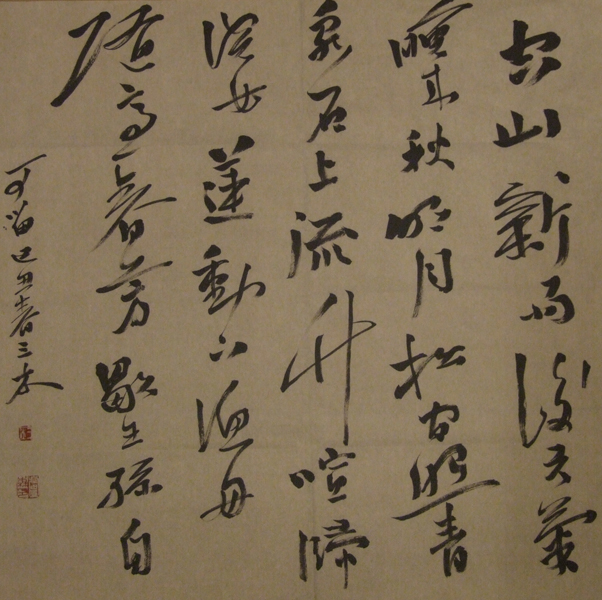 空山新雨後天氣
晚來秋明月松間照青
泉石上流竹喧歸
浣女蓮動下漁舟
隨意春芳歇王孫自
可留己丑春三